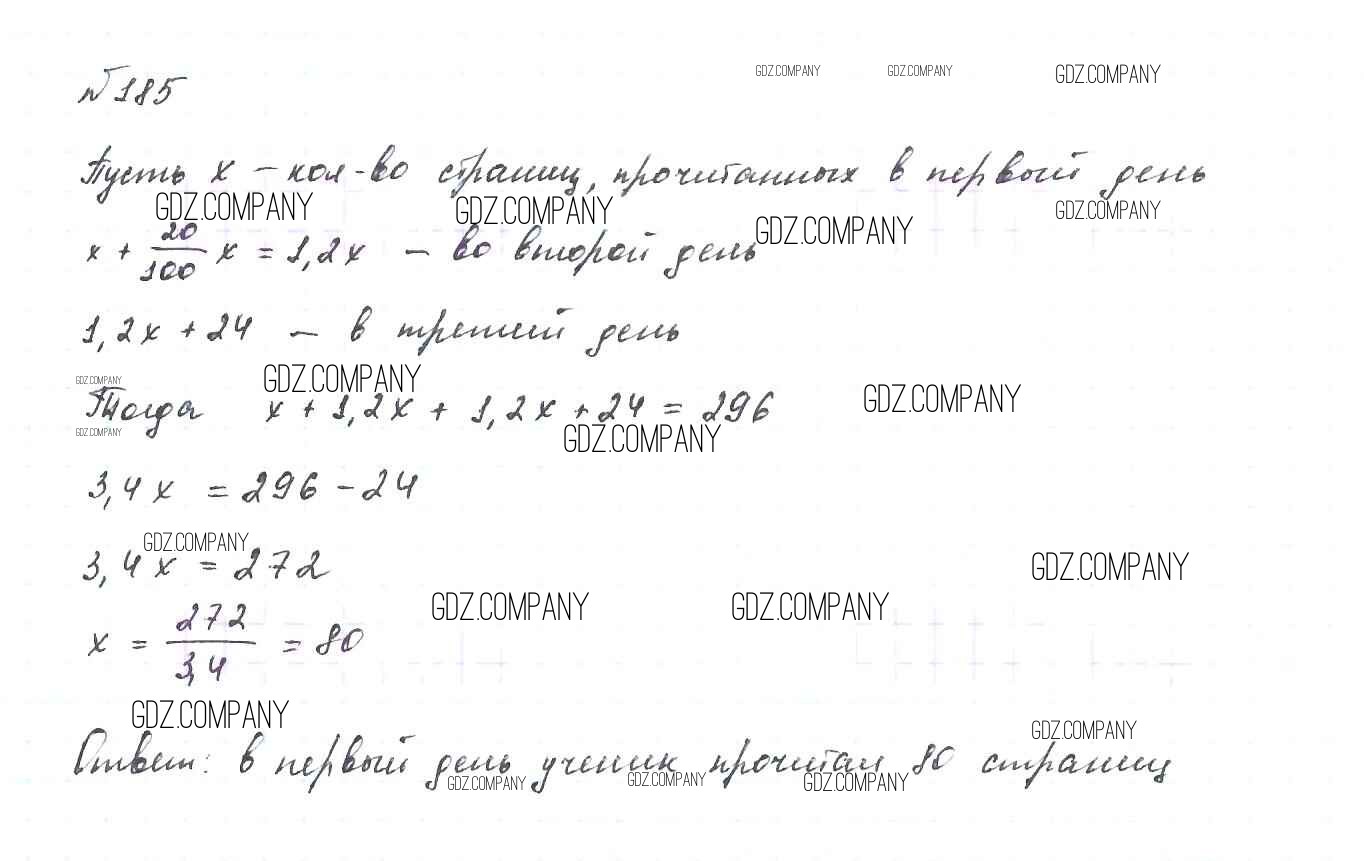 GDZ.COMPANY GDZ.COMPANY GDZ.COMPANY
№185
Пусть x – кол-во страниц, прочитанных в первый день
GDZ.COMPANY GDZ.COMPANY GDZ.COMPANY GDZ.COMPANY
x + 20/100 x = 1,2x – во второй день
1,2x + 24 – в третий день
GDZ.COMPANY GDZ.COMPANY GDZ.COMPANY
Тогда x + 1,2x + 1,2x + 24 = 296
GDZ.COMPANY GDZ.COMPANY
3,4x = 296 - 24
GDZ.COMPANY GDZ.COMPANY
3,4x = 272
GDZ.COMPANY GDZ.COMPANY
x = 272/3,4 = 80
GDZ.COMPANY GDZ.COMPANY
Ответ: в первый день ученик прочитал 80 страниц
GDZ.COMPANY GDZ.COMPANY GDZ.COMPANY